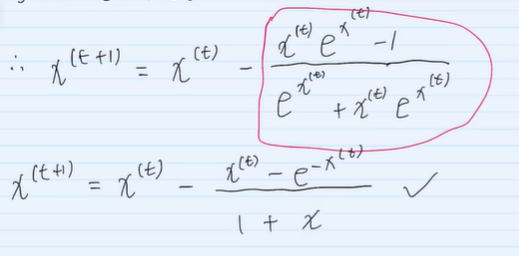 ∴ x^(t+1) = x^(t) - (x^(t) e^x^(t) - 1) / (e^x^(t) + x^(t) e^x^(t))
x^(t+1) = x^(t) - (x^(t) - e^-x^(t)) / (1 + x) ✓